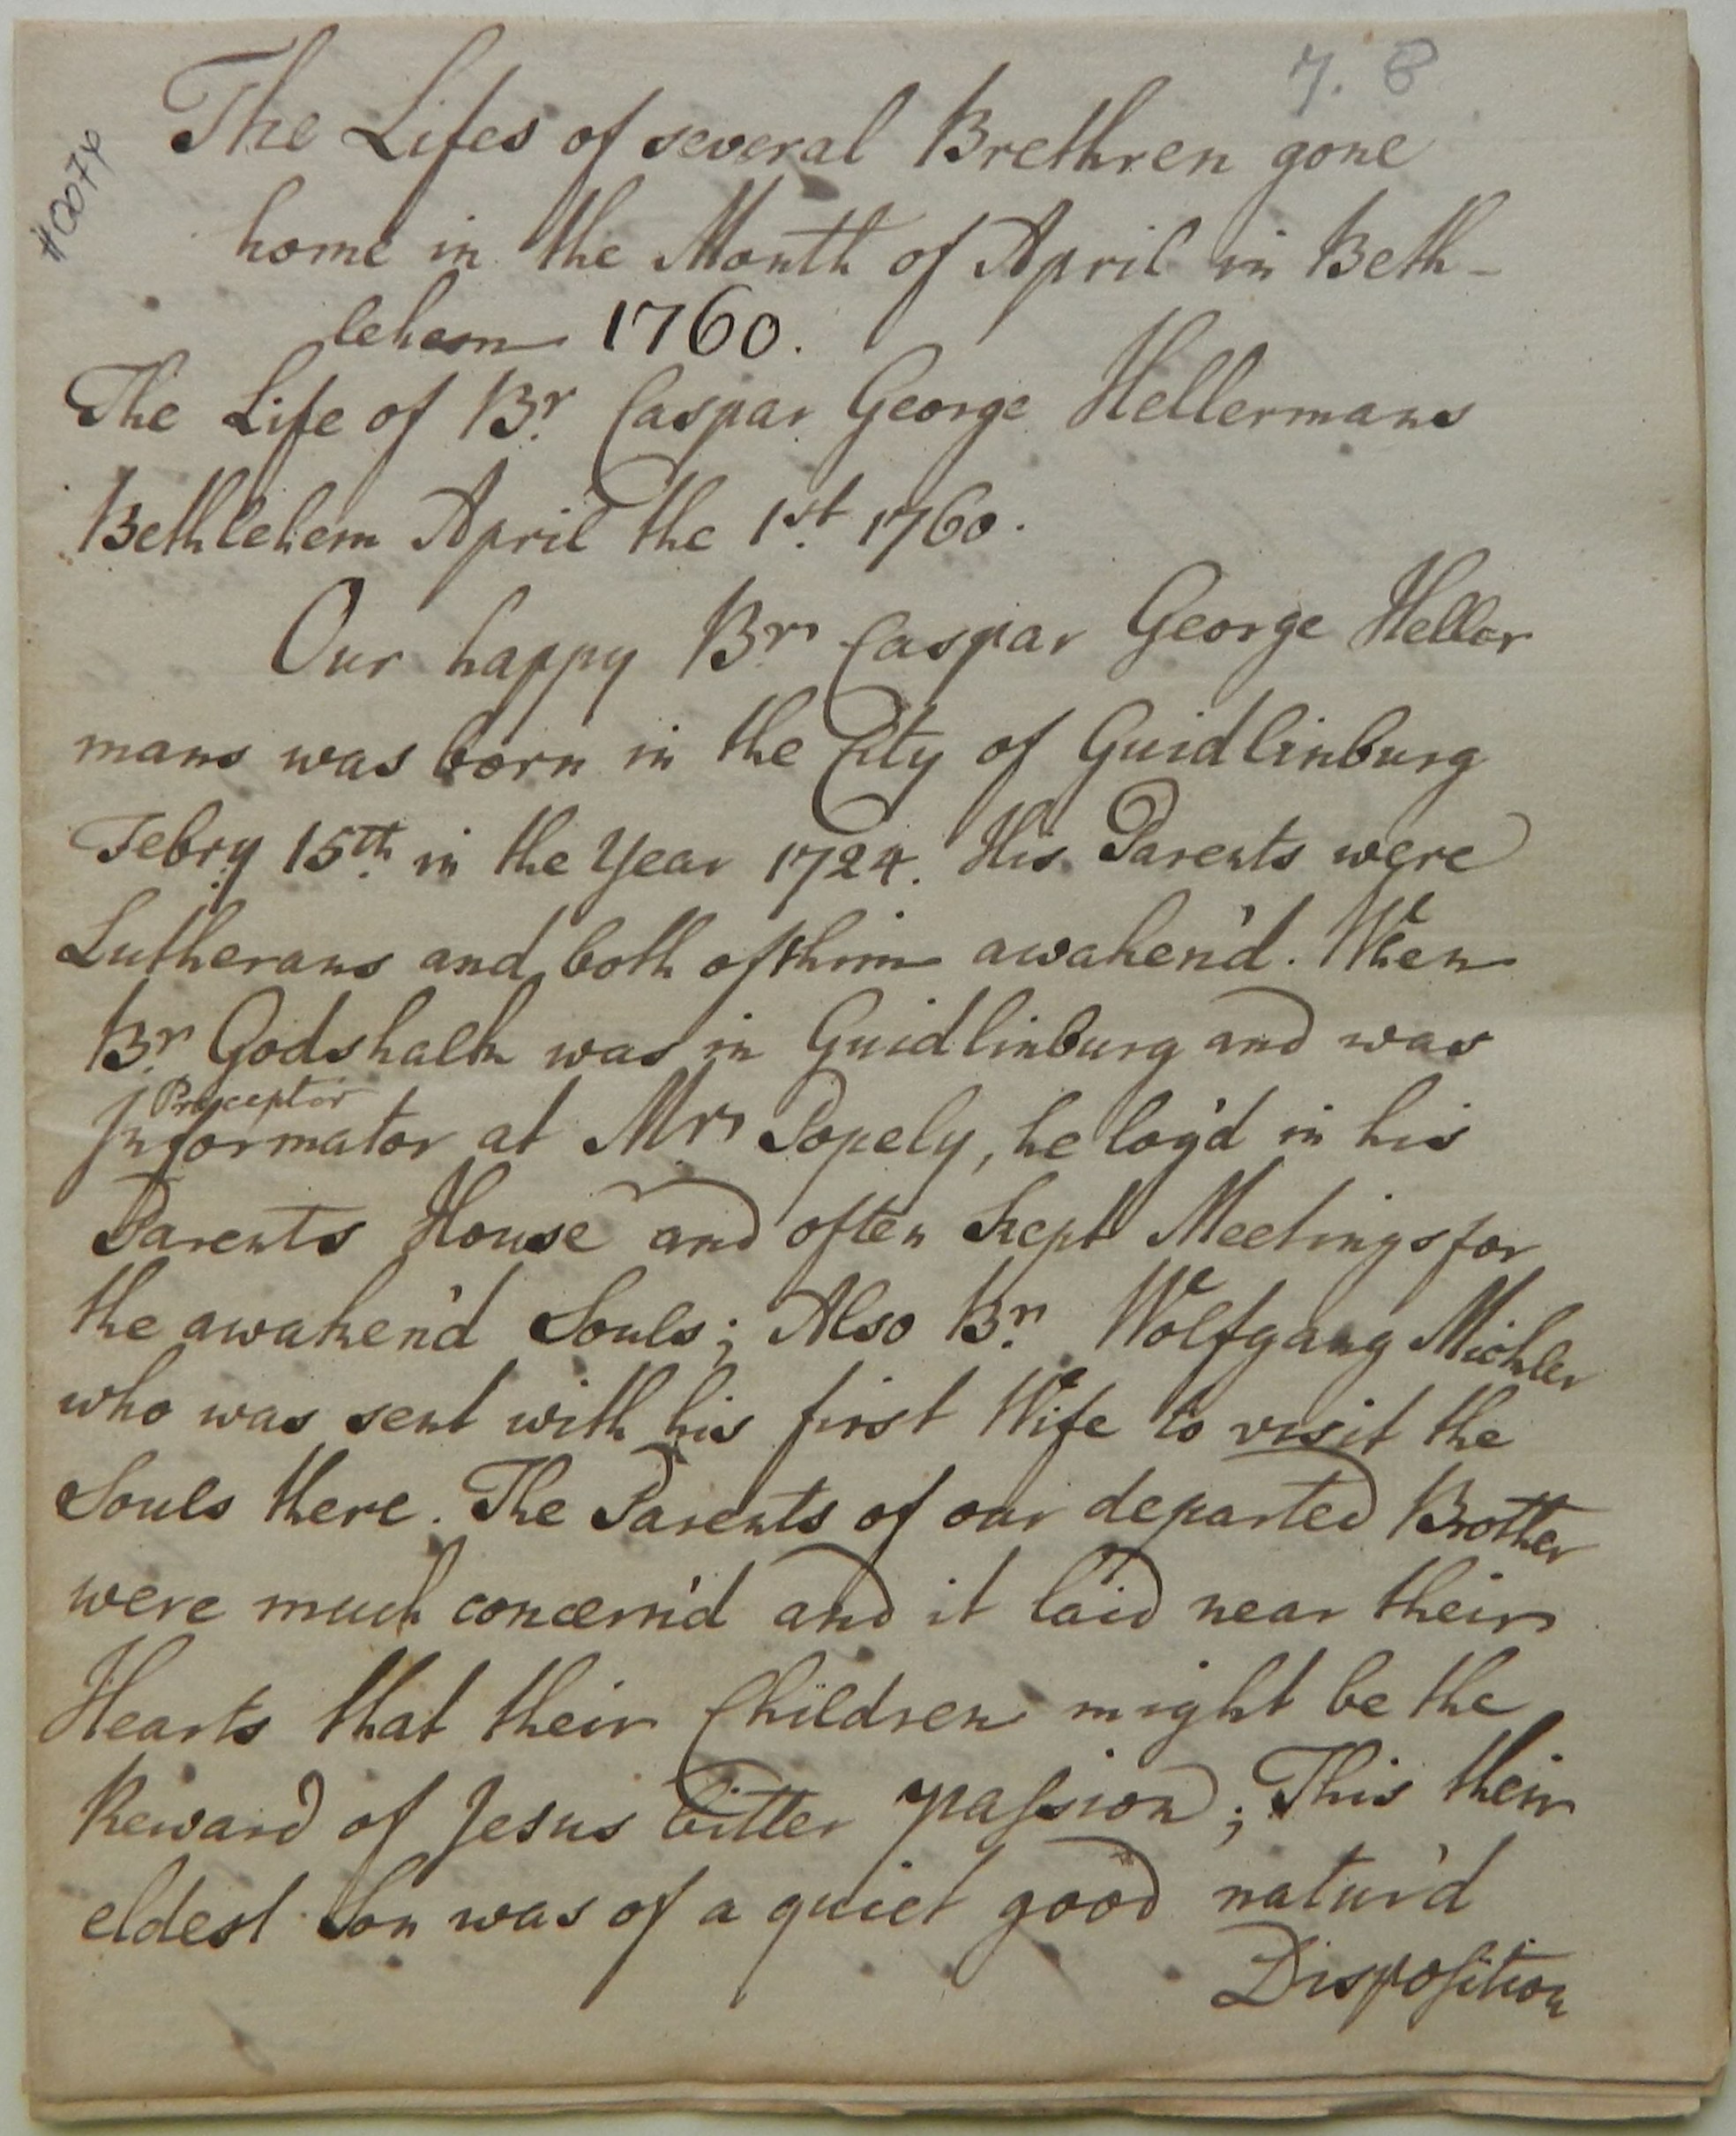 7. 8
#0074
The Lifes of several Brethren gone
home in the Month of April in Beth-
lehem 1760.
The Life of Br. Caspar George Hellermans
Bethlehem April the 1st. 1760.
Our happy Br. Caspar George Heller
mans was born in the City of Guidlinburg
Febry 15th. in the Year 1724. His Parents were
Lutherans and both of thim awaken'd. When
Br. Godshalk was in Guidlinburg and was
Præceptor
Informator at Mr. Popely, he log'd in his
Parents House and often kept Meetings for
the awaken'd Souls; Also Br. Wolfgang Michler
who was sent with his first Wife to visit the
Souls there. The Parents of our departed Brother
were much concern'd and it laid near their
Hearts that their Children might be the
Reward of Jesus bitter passion; This their
eldest Son was of a quiet good natur'd
Disposition